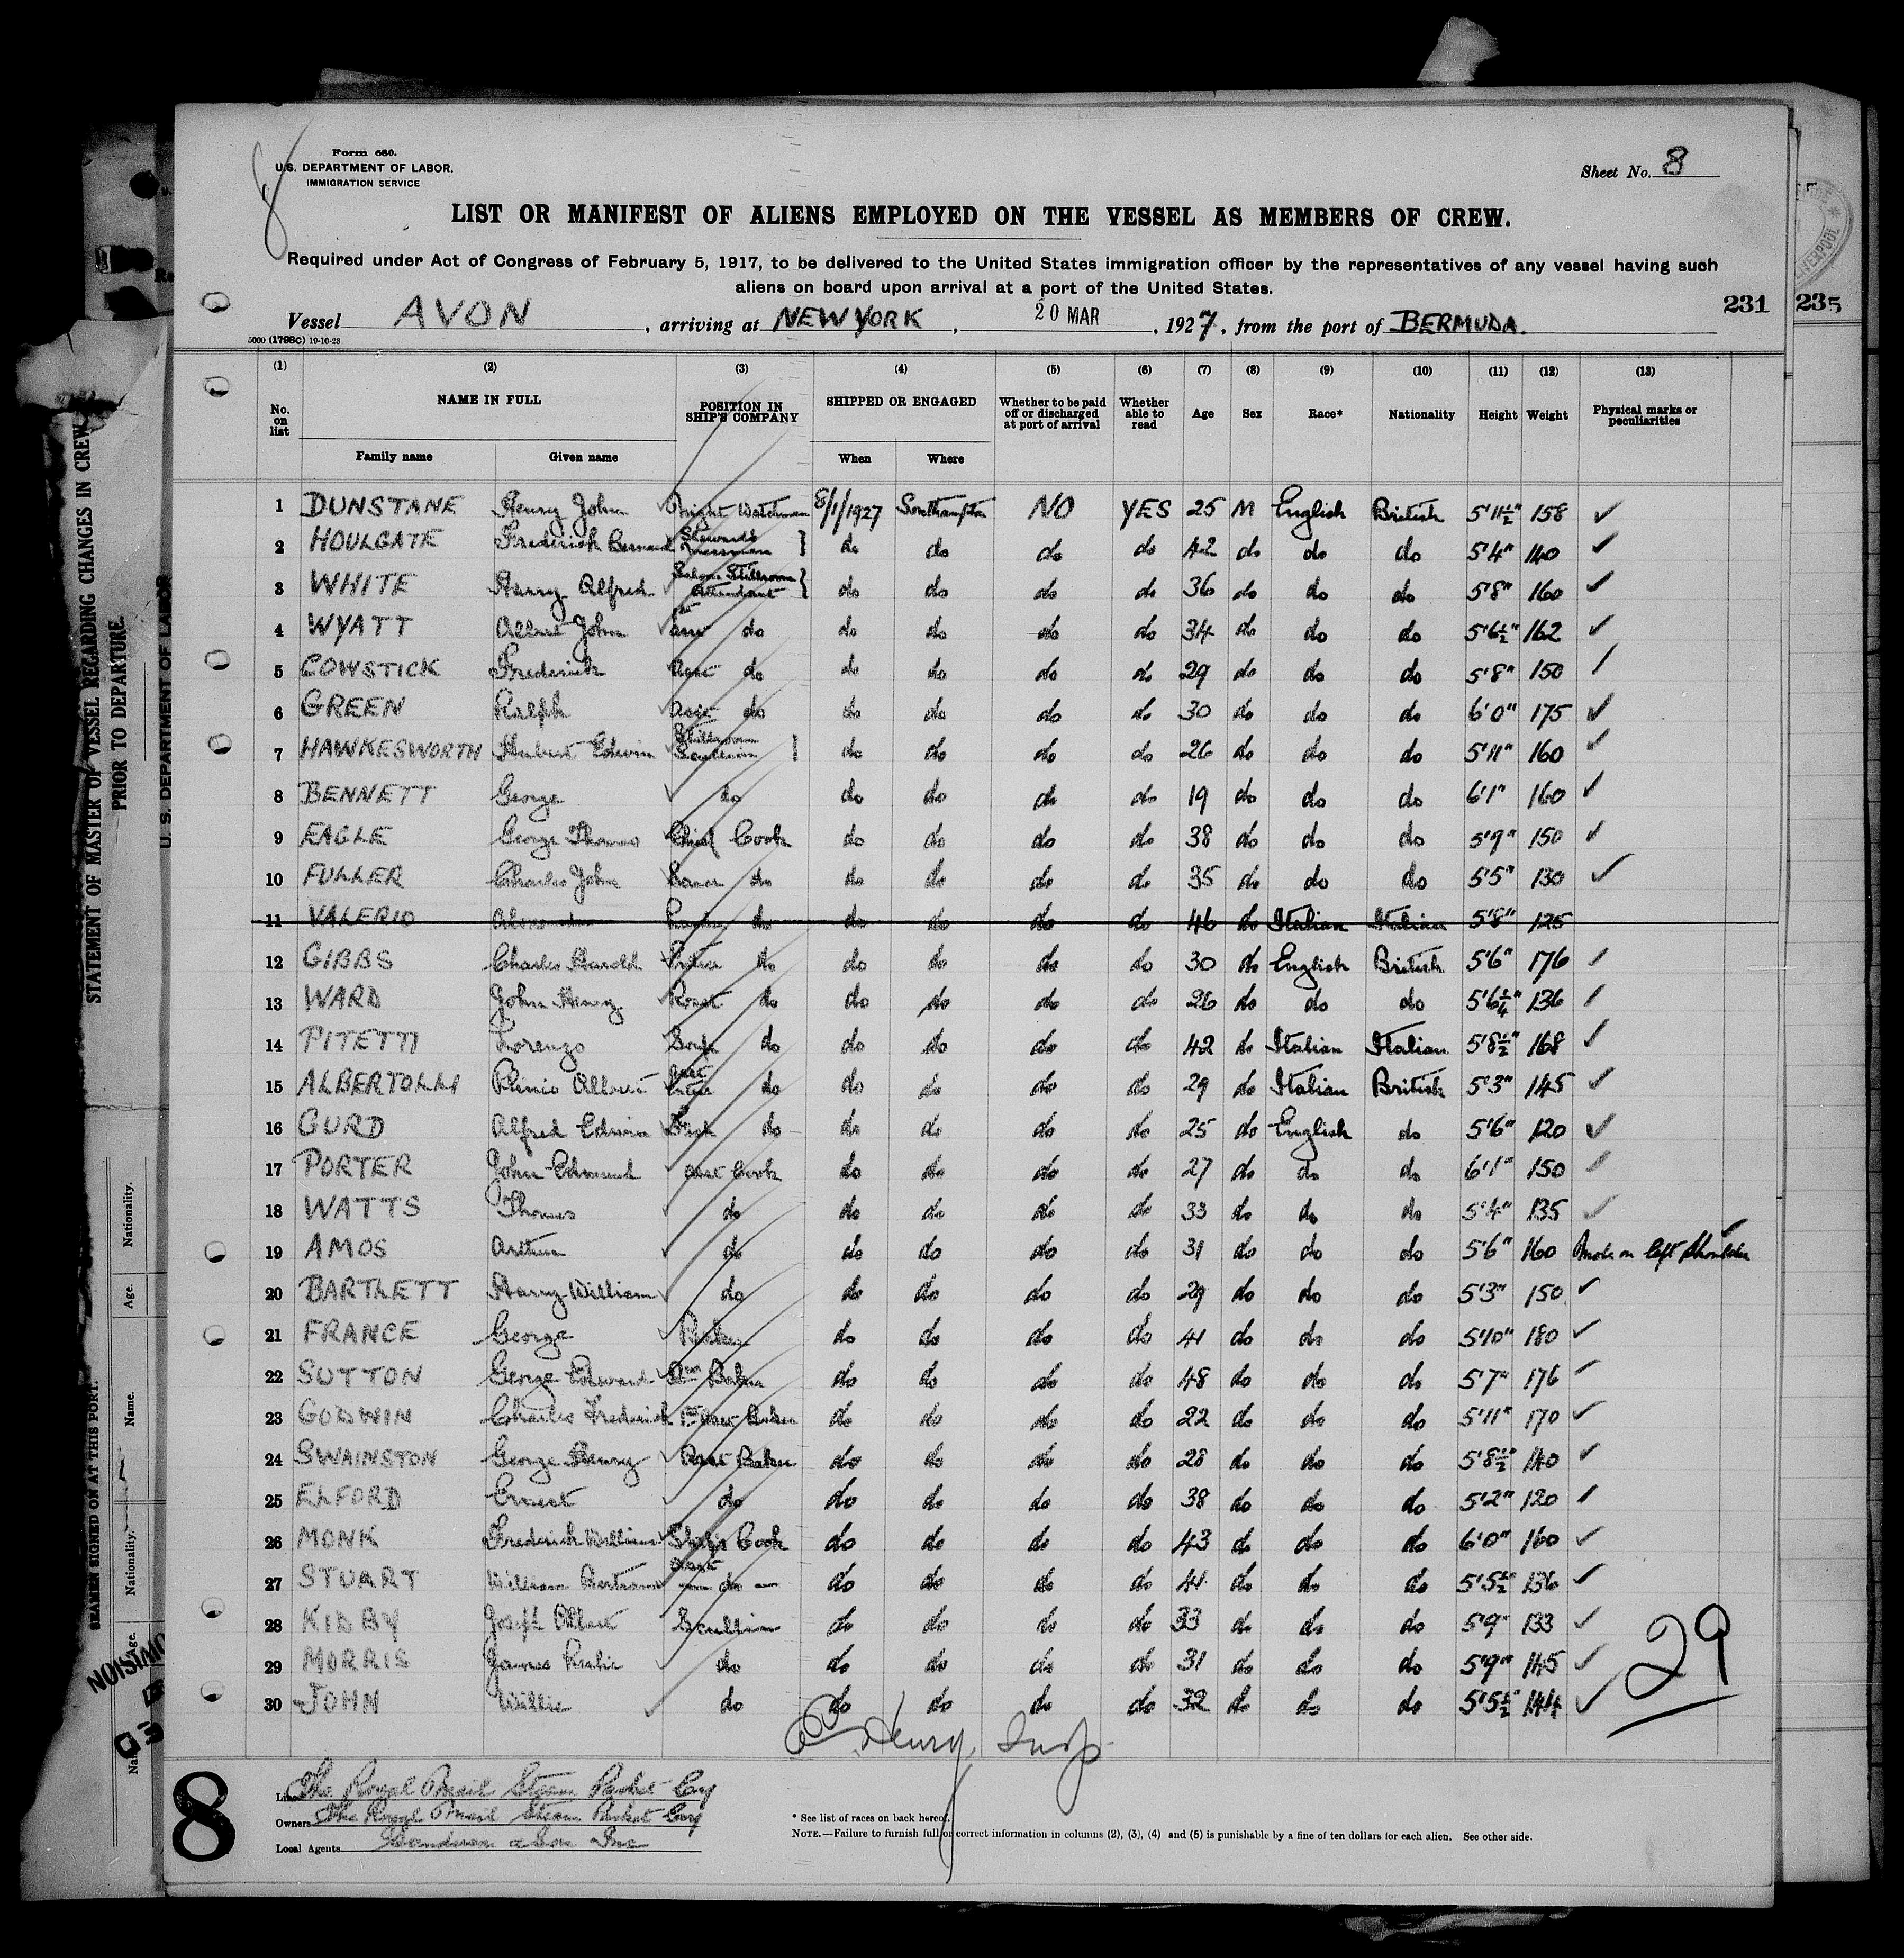 Form 680.
U.S. DEPARTMENT OF LABOR.
IMMIGRATION SERVICE
Sheet No. 8
LIST OR MANIFEST OF ALIENS EMPLOYED ON THE VESSEL AS MEMBERS OF CREW.
Required under Act of Congress of February 5, 1917, to be delivered to the United States immigration officer by the representatives of any vessel having such
aliens on board upon arrival at a port of the United States.
231 235
Vessel AVON, arriving at NEW YORK, 20 MAR, 1927, from the port of BERMUDA.
5000 (1798C) 19-10-23
(1) (2) (3) (4) (5) (6) (7) (8) (9) (10) (11) (12) (13)
No. on list NAME IN FULL POSITION IN SHIP'S COMPANY SHIPPED OR ENGAGED Whether to be paid off or discharged at port of arrival Whether able to read Age Sex Race* Nationality Height Weight Physical marks or peculiarities
Family name Given name When Where
1 DUNSTANE Henry John Night Watchman 8/1/1927 Southampton NO YES 25 M English British 5'11½" 158
2 HOULGATE Frederick Bernard Steward's Messman do do do do 42 do do do 5'4" 140
3 WHITE Harry Alfred Saloon Stillroom Attendant do do do do 36 do do do 5'8" 160
4 WYATT Albert John do do do do do 34 do do do 5'6½" 162
5 COWSTICK Frederick Asst do do do do do 29 do do do 5'8" 150
6 GREEN Ralph Asst do do do do do 30 do do do 6'0" 175
7 HAWKESWORTH Hubert Edwin Stillroom Scullion do do do do 26 do do do 5'11" 160
8 BENNETT George do do do do do 19 do do do 6'1" 160
9 EAGLE George Thomas Chief Cook do do do do 38 do do do 5'9" 150
10 FULLER Charles John Sauce do do do do do 35 do do do 5'5" 130
11 VALERIO do do do do do 46 do Italian Italian 5'8" 125
12 GIBBS Charles Harold do do do do do 30 do English British 5'6" 176
13 WARD John Henry Roast do do do do do 26 do do do 5'6¼" 136
14 PITETTI Lorenzo Soup do do do do do 42 do Italian Italian 5'8½" 168
15 ALBERTOLLI Plinio Albert do do do do do 29 do Italian British 5'3" 145
16 GURD Alfred Edwin do do do do do 25 do English do 5'6" 120
17 PORTER John Edmund Asst Cook do do do do 27 do do do 6'1" 150
18 WATTS Thomas do do do do do 33 do do do 5'4" 135
19 AMOS Arthur do do do do do 31 do do do 5'6" 160 on left shoulder
20 BARTLETT Harry William do do do do do 29 do do do 5'3" 150
21 FRANCE George Baker do do do do 41 do do do 5'10" 180
22 SUTTON George Edward Baker do do do do 48 do do do 5'7" 176
23 GODWIN Charles Frederick 1st Asst Baker do do do do 22 do do do 5'11" 170
24 SWAINSTON George Henry Asst Baker do do do do 28 do do do 5'8½" 140
25 ELFORD Ernest do do do do do 38 do do do 5'2" 120
26 MONK Frederick William Ship's Cook do do do do 43 do do do 6'0" 160
27 STUART William Bertram Asst do do do do do 41 do do do 5'5½" 136
28 KIDBY Joseph Albert Scullion do do do do 33 do do do 5'9" 133
29 MORRIS James Leslie do do do do do 31 do do do 5'9" 145
30 JOHN Willie do do do do do 32 do do do 5'5½" 144
29
Henry Insp
Line The Royal Mail Steam Packet Coy
Owners The Royal Mail Steam Packet Coy
Local Agents Sanderson & Son Inc
* See list of races on back hereof.
NOTE.—Failure to furnish full or correct information in columns (2), (3), (4) and (5) is punishable by a fine of ten dollars for each alien. See other side.
8
STATEMENT OF MASTER OF VESSEL REGARDING CHANGES IN CREW
PRIOR TO DEPARTURE.
U. S. DEPARTMENT OF LABOR
SEAMEN SIGNED ON AT THIS PORT.
Nationality.
Age.
Name.
Nationality.
Age.
LIVERPOOL